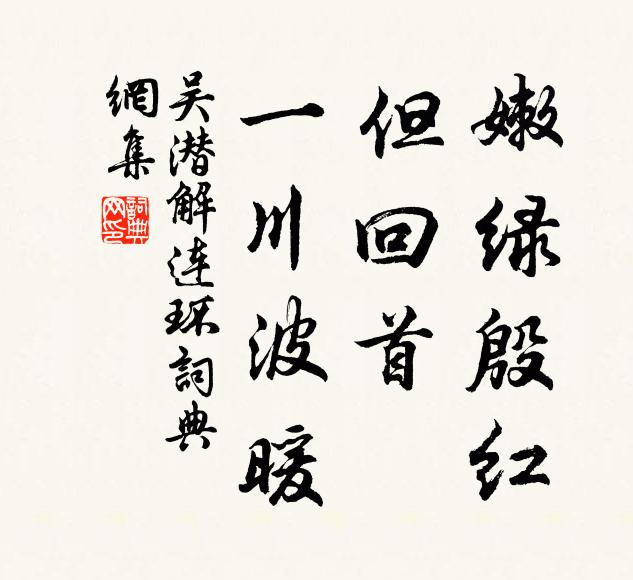 嫩绿殷红
但回首
一川波暖
吴潜解连环詞典
網集
詞典
网印